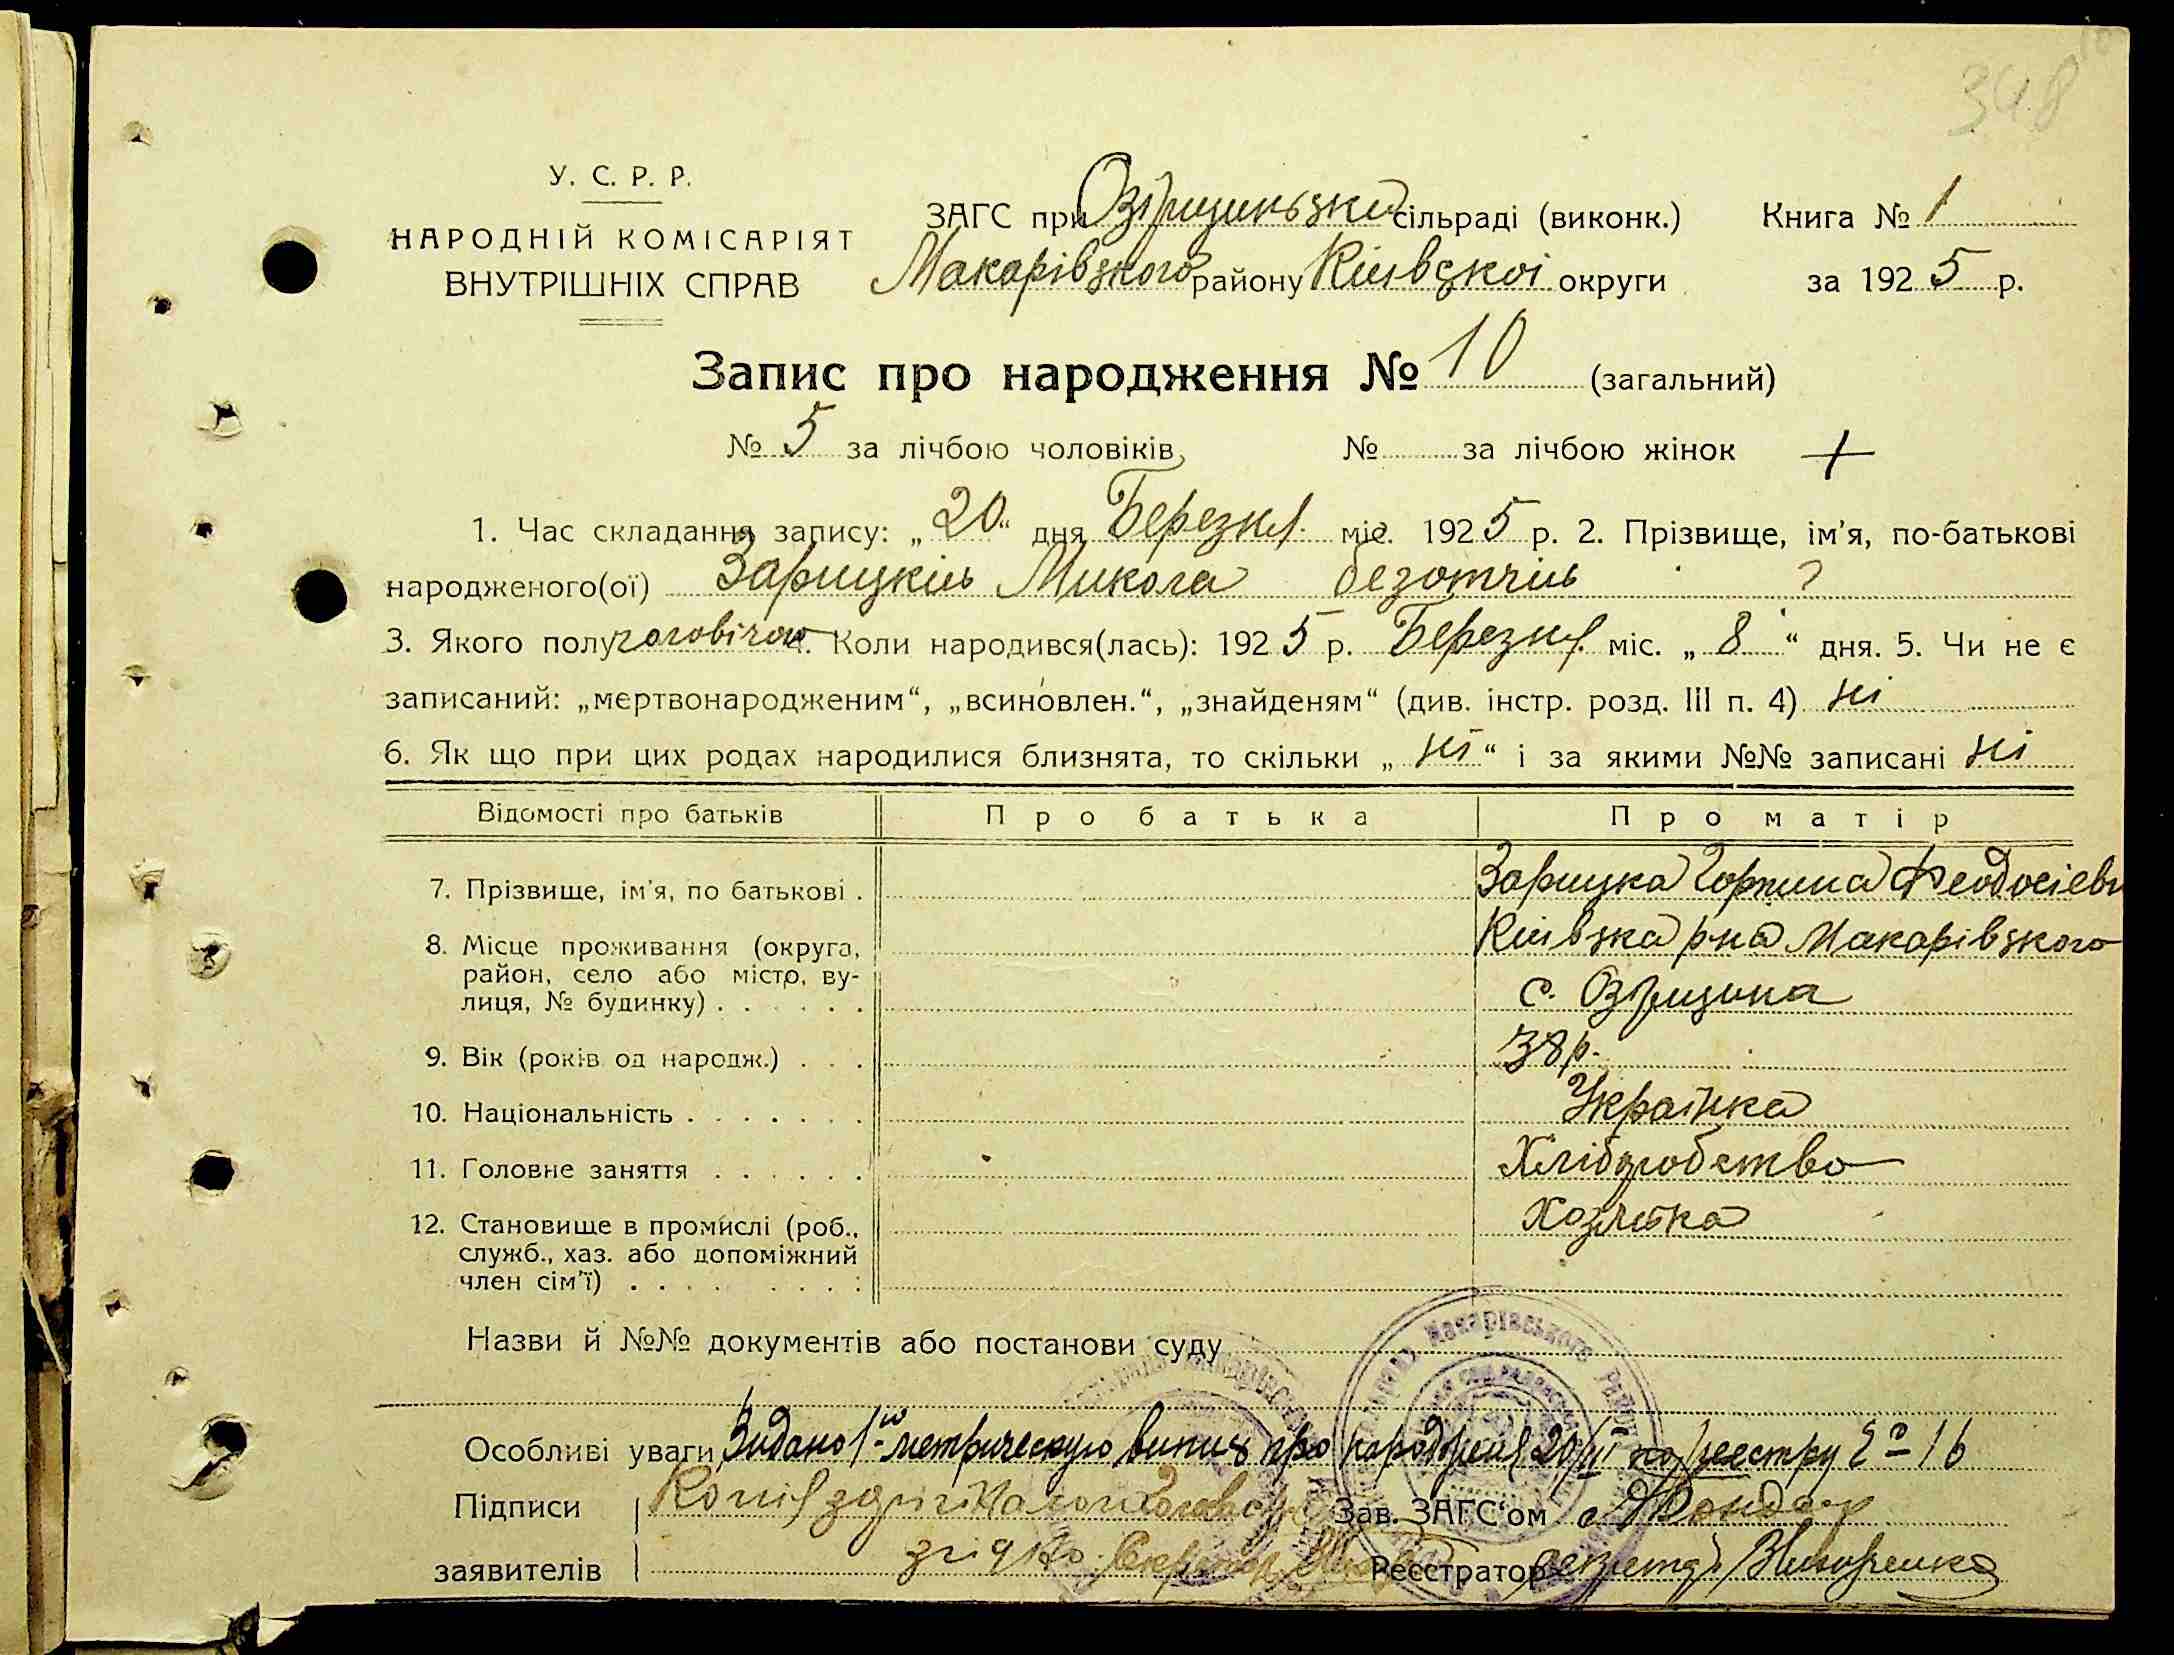 348
У. С. Р. Р.
НАРОДНІЙ КОМІСАРІЯТ
ВНУТРІШНІХ СПРАВ
ЗАГС при Озірщиньзкій сільраді (виконк.) Книга № 1
Макарівзкого району Київскої округи за 1925 р.
Запис про народження № 10 (загальний)
№ 5 за лічбою чоловіків, № за лічбою жінок
1. Час складання запису: „20“ дня Березня міс. 1925 р. 2. Прізвище, ім'я, по-батькові
народженого(ої) Зарицкій Микола безотчій ?
3. Якого полу чоловічого 4. Коли народився(лась): 1925 р. Березня міс. „8“ дня. 5. Чи не є
записаний: „мертвонародженим“, „всиновлен.“, „знайденям“ (див. інстр. розд. III п. 4) ні
6. Як що при цих родах народилися близнята, то скільки „ні“ і за якими №№ записані ні
Відомості про батьків Про батька Про матір
7. Прізвище, ім'я, по батькові . Зарицка Горпина Феодосієвн
8. Місце проживання (округа, район, село або місто, вулиця, № будинку) . . . . . . Київзка р-на Макарівзкого
с. Озірщина
9. Вік (років од народж.) . . . 38 р.
10. Національність . . . . . . . Українка
11. Головне заняття . . . . . . Хліборобство
12. Становище в промислі (роб., Хозяйка
служб., хаз. або допоміжний
член сім'ї) . . . . . . . .
Назви й №№ документів або постанови суду
Особливі уваги Видано 1-ю метрическую випис про народження 20/III по реестру № 16
Підписи Копія з орігіналом Зав. ЗАГС'ом Бондар
заявителів згідно. Секретар Реєстратор секретар
Макарівського Району